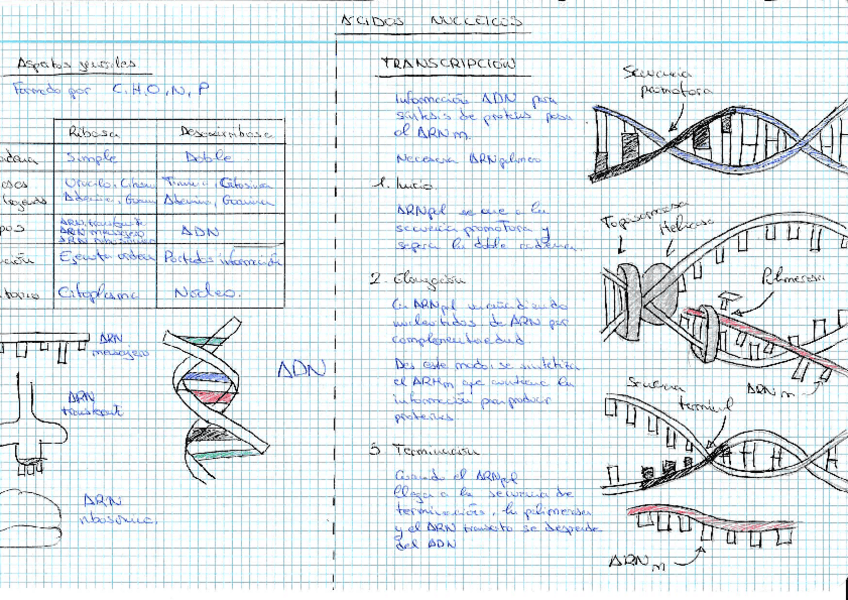 ACIDOS NUCLEICOS
Aspectos generales
Formado por C, H, O, N, P
Ribosa Desoxirribosa
Simple Doble
Uracilo, Citosina Timina, Citosina
Adenina, Guanina Adenina, Guanina
ARN transfert
ARN mensajero
ARN ribosomico
ADN
Ejecuta ordenes Portadora información
Citoplasma Nucleo.
ARN
mensajero
ARN
transfert
ARN
ribosomico.
ADN
TRANSCRIPCIÓN
Información ADN para
síntesis de proteínas pasa
al ARNm.
Necesaria ARNpolimerasa
1. Inicio
ARNpol se une a la
secuencia promotora y
separa la doble cadena.
2. Elongación
La ARNpol va añadiendo
nucleotidos de ARN por
complementariedad
De este modo se sintetiza
el ARNm que contiene la
información para producir
proteinas
3 Terminación
Cuando el ARNpol
llega a la secuencia de
terminación, la polimerasa
y el ARN transcrito se desprende
del ADN
Secuencia
promotora
Topoisomerasa
Helicasa
Polimerasa
ARN m
Secuencia
terminal
ARN m